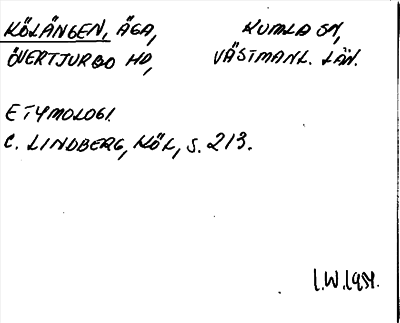 KÖLÄNGEN, ÄGA, KUMLA SN,
ÖVERTJURBO HD, VÄSTMANL. LÄN.
ETYMOLOGI.
C. LINDBERG, KÖL, S. 213.